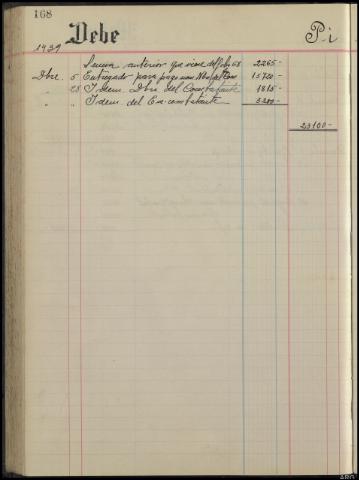 168
Debe
P. i
1939
Suma anterior que viene del folio 68 2265-
Dbre. 5 Entregado para pago 15720-
" 28 Idem. Dbre del Combatiente 1815-
" " Idem. del Ex-combatiente 3300-
23100-
ABC